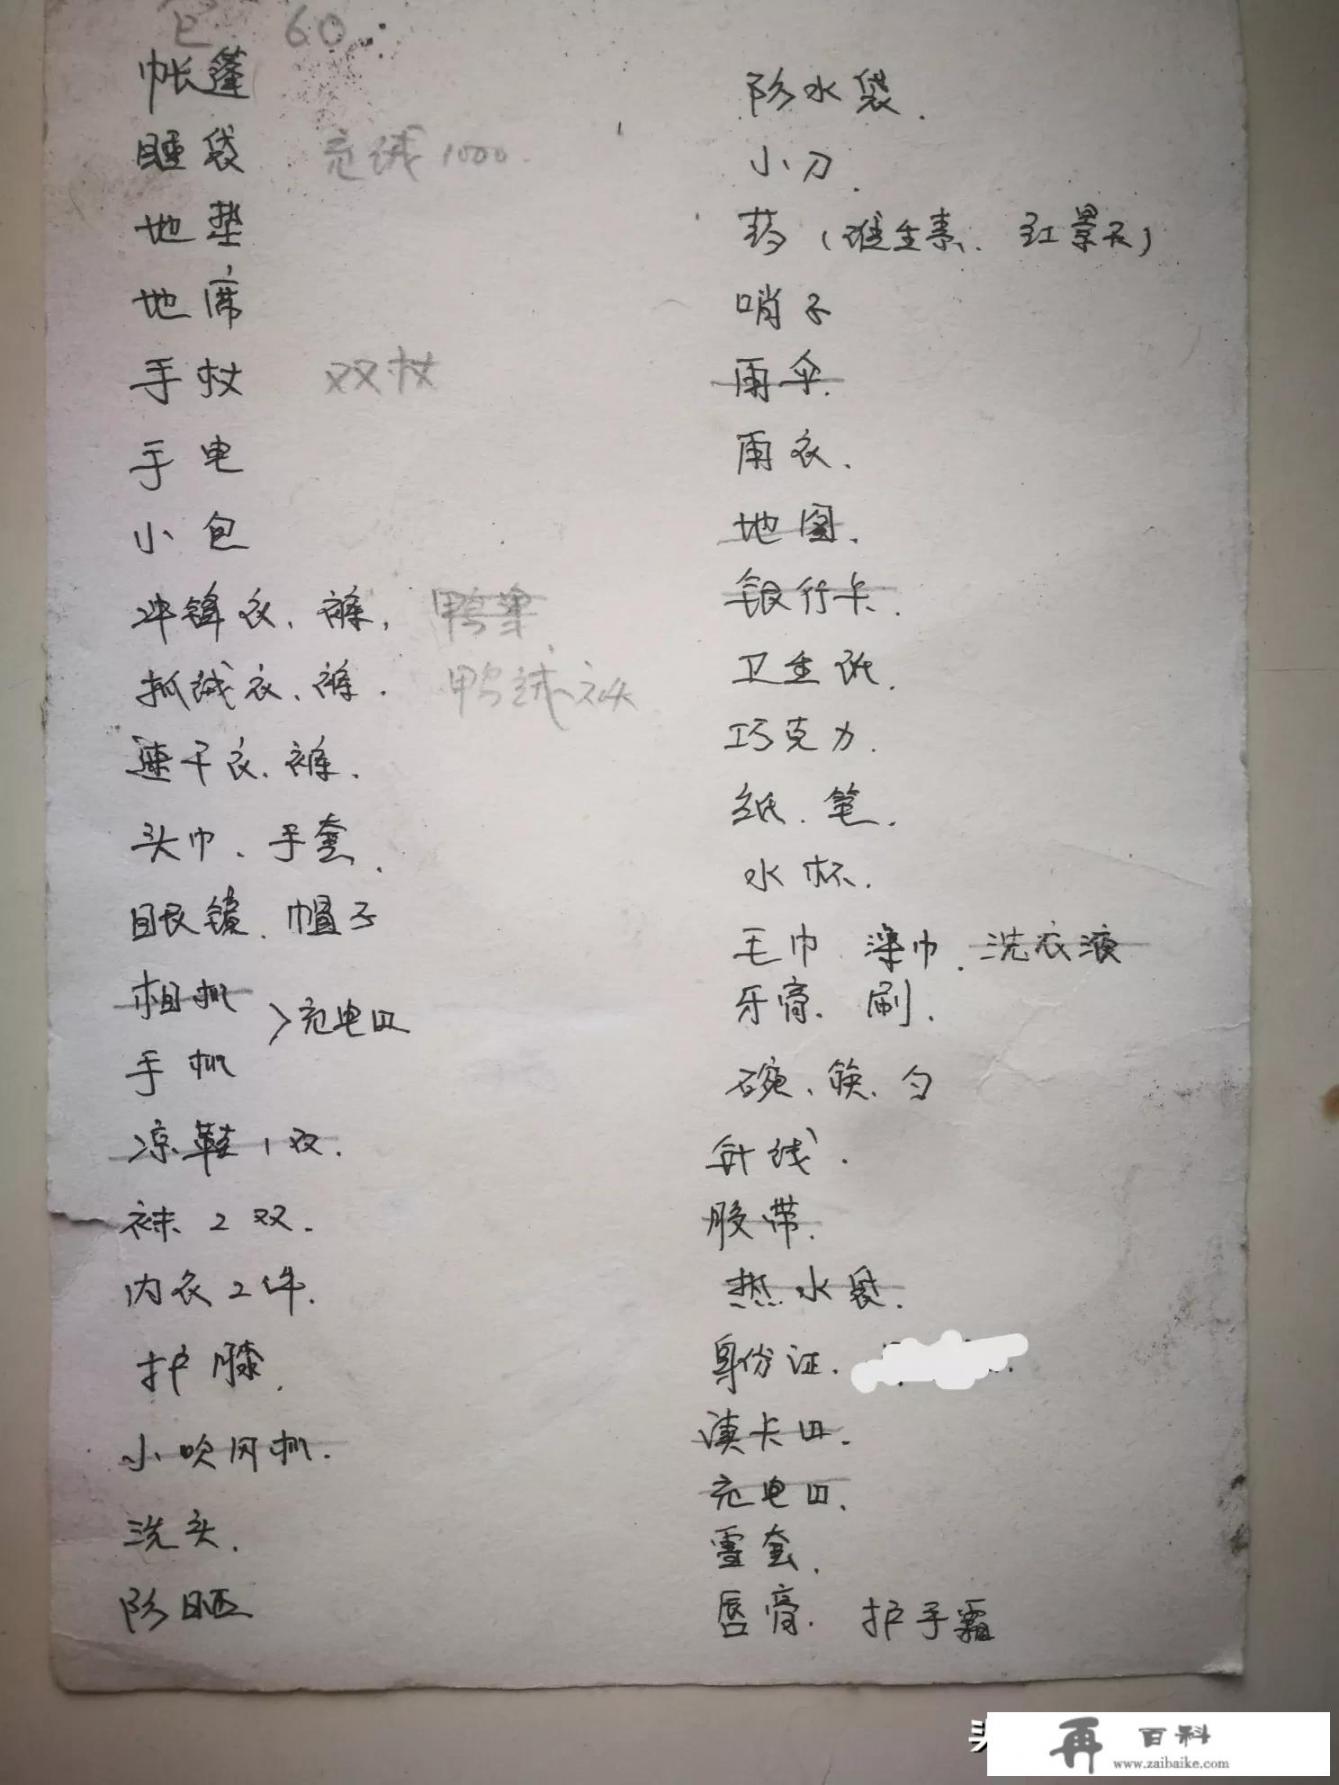 包 60
帐篷
睡袋 充绒1000.
地垫
地席
手杖 双杖
手电
小包
冲锋衣、裤,
抓绒衣、裤. 鸭绒衣
速干衣、裤.
头巾、手套.
眼镜、帽子
相机
>充电四
手机
凉鞋1双.
袜2双.
内衣2件.
护膝.
小吹风机.
洗头.
防晒
防水袋.
小刀.
药(维生素、红景天)
哨子
雨伞.
雨衣.
地图.
银行卡.
卫生纸.
巧克力.
纸、笔.
水杯.
毛巾 澡巾、洗衣液
牙膏. 刷.
碗、筷、勺
针线.
胶带.
热水袋.
身份证.
读卡四.
充电四.
雪套.
唇膏. 护手霜
再 百科
www.zaibaike.com